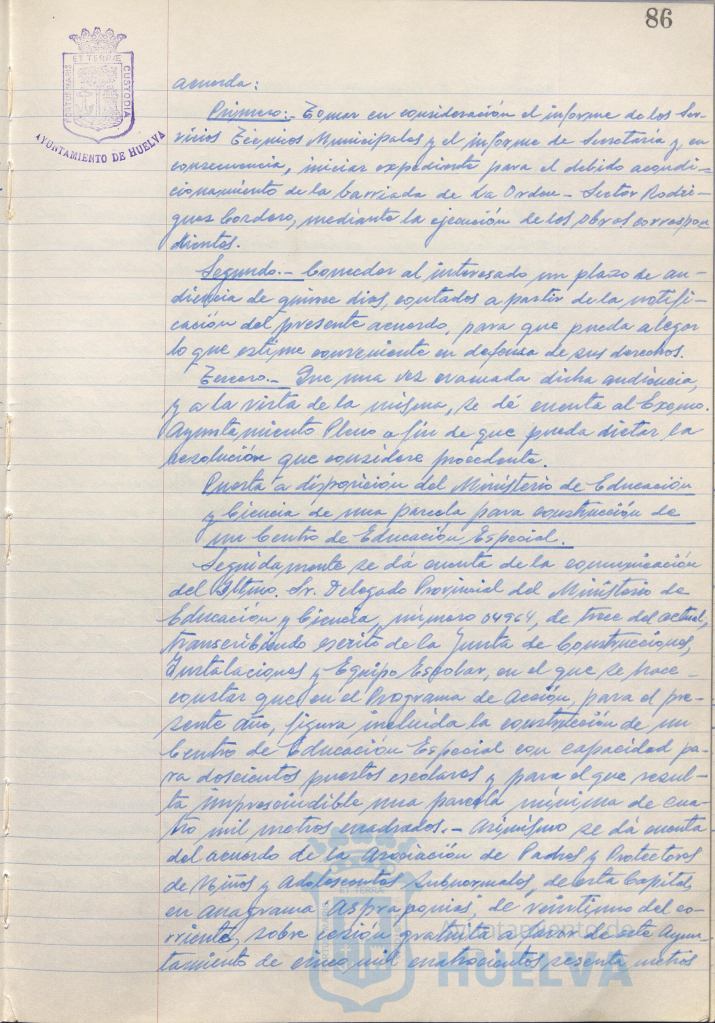 86
PORTUS MARIS ET TERRAE CUSTODIA
AYUNTAMIENTO DE HUELVA
acuerda:
Primero.- Tomar en consideración el informe de los Ser-
vicios Técnicos Municipales y el informe de Secretaría y, en
consecuencia, iniciar expediente para el debido acondi-
cionamiento de la barriada de La Orden - Sector Rodrí-
guez Cordero, mediante la ejecución de las obras correspon
dientes.
Segundo.- Conceder al interesado un plazo de au-
diencia de quince días, contados a partir de la notifi-
cación del presente acuerdo, para que pueda alegar
lo que estime conveniente en defensa de sus derechos.
Tercero.- Que una vez evacuada dicha audiencia,
y a la vista de la misma, se dé cuenta al Excmo.
Ayuntamiento Pleno a fin de que pueda dictar la
resolución que considere procedente.
Puesta a disposición del Ministerio de Educación
y Ciencia de una parcela para construcción de
un Centro de Educación Especial.
Seguidamente se dá cuenta de la comunicación
del Iltmo. Sr. Delegado Provincial del Ministerio de
Educación y Ciencia, número 04964, de trece del actual,
transcribiendo escrito de la Junta de Construcciones,
Instalaciones y Equipo Escolar, en el que se hace
constar que en el Programa de Acción, para el pre-
sente año, figura incluida la construcción de un
Centro de Educación Especial con capacidad pa
ra doscientos puestos escolares y para el que resul-
ta imprescindible una parcela mínima de cua
tro mil metros cuadrados.- Asimismo se dá cuenta
del acuerdo de la Asociación de Padres y Protectores
de Niños y Adolescentes Subnormales, de esta Capital,
en anagrama "Aspraponias", de veintiuno del co-
rriente, sobre cesión gratuita a favor de este Ayun-
tamiento de cinco mil cuatrocientos sesenta metros
Ayuntamiento de
HUELVA